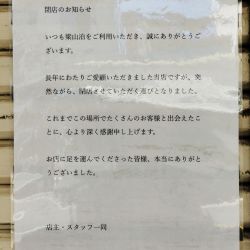 閉店のお知らせ
いつも梁山泊をご利用いただき、誠にありがとうご
ざいます。
長年にわたりご愛顧いただきました当店ですが、突
然ながら、閉店させていただく運びとなりました。
これまでこの場所でたくさんのお客様と出会えたこ
とに、心より深く感謝申し上げます。
お店に足を運んでくださった皆様、本当にありがと
うございました。
店主・スタッフ一同